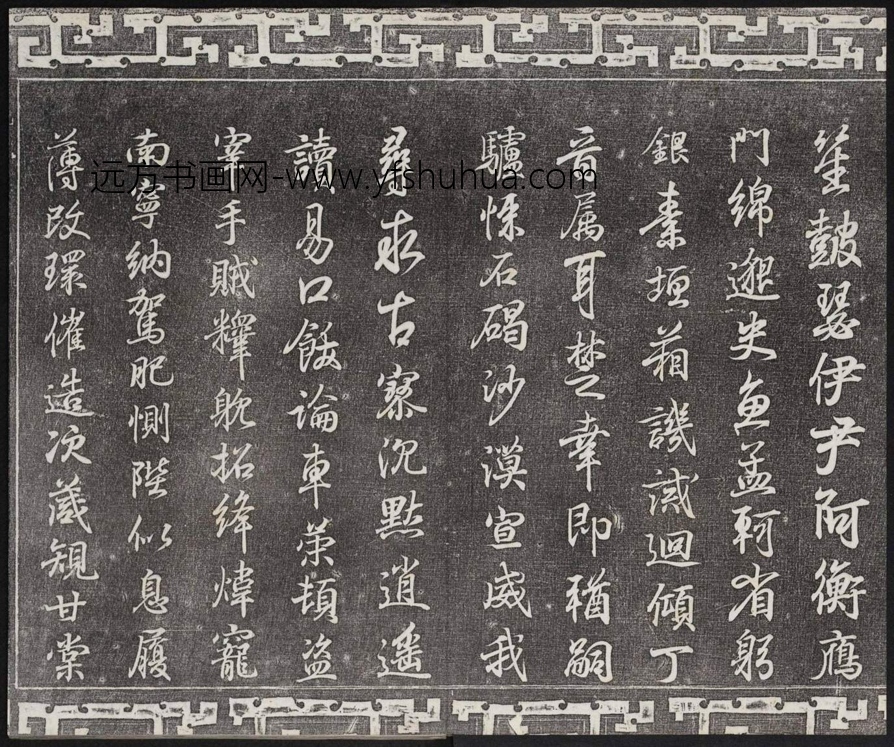 笙鼓瑟伊尹阿衡鴈
門綿邈史魚孟軻省躬
銀素垣箱譏誡迴傾丁
音屬耳楚幸即猶嗣
驢悚石碣沙漠宣威我
尋求古寮沉默逍遙
讀易口飫論車策頓盜
宰手賊糧躭拓絳煒寵
南寧納駕肥惻陛似息履
薄改環催造次箴規甘棠
远方书画网-www.yfshuhua.com